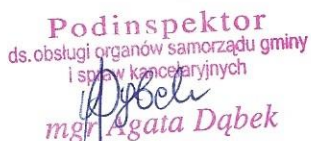 Podinspektor
ds. obsługi organów samorządu gminy
i spraw kancelaryjnych
mgr Agata Dąbek